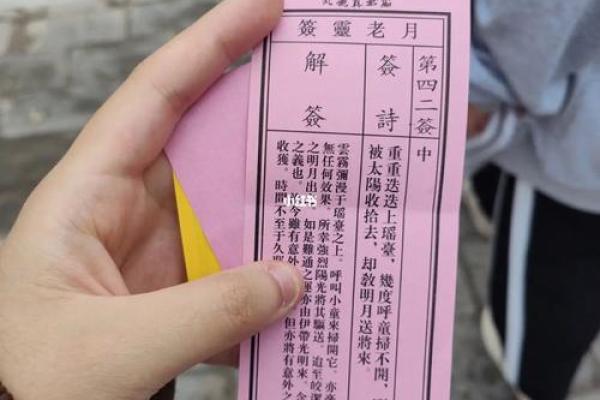 月老靈簽
第四二簽 中
簽詩
重重迭迭上瑶臺，幾度呼童掃不開，
被太陽收拾去，却教明月送將來。
解簽
雲霧彌漫于瑶臺之上。呼叫小童來掃開它，亦
無任何效果。所幸強烈陽光將其驅送，迨至皎潔
之明月出，如是難通之運亦由伊帶光明來。
之義也。今雖有意外 但亦將有意外之
收獲。時間不至于久
小红书